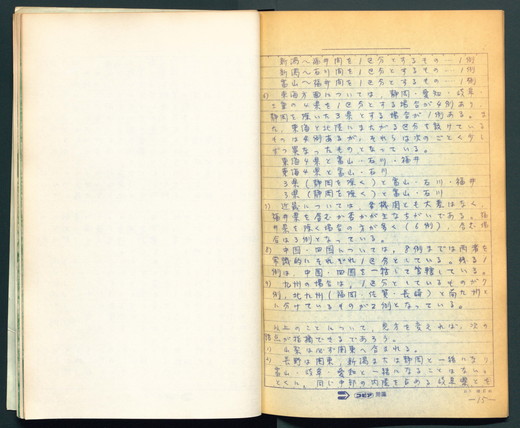 新潟〜福井間を1区分とするもの … 1例
新潟〜石川間を1区分とするもの … 1例
富山〜福井間を1区分とするもの … 1例
6) 東海方面については、静岡・愛知・岐阜
三重の4県を1区分とする場合が4例あり
静岡を除いた3県とする場合が1例ある。ま
た、東海と北陸にまたがる区分を設けている
ものは4例あるが、それらは次のごとく少し
ずつ異なったものとなっている。
東海4県と富山・石川・福井
東海4県と富山・石川
3県(静岡を除く)と富山・石川・福井
3県(静岡を除く)と富山・石川
7) 近畿については、各機関とも大差はなく、
福井県を含むか否かが主なちがいである。福
井県を除く場合の方が多く(6例)、含む場
合は3例となっている。
8) 中国・四国については、8例までは両者を
常識的にそれぞれ1区分としている。残る1
例は、中国・四国を一括して管轄している。
9) 九州の場合は、1区分としているものが7
例、北九州(福岡・佐賀・長崎)と南九州と
に分けているものが2例となっている。
以上のことについて、見方を変えれば、次の
指点が指摘できるであろう。
1) 山梨は必ず関東へ含まれる。
2) 長野は関東、新潟または静岡と一緒になり
富山・岐阜・愛知と一緒になることはない。
とくに、同じ中部の内陸を占める岐阜県とも
コクヨ
—15—